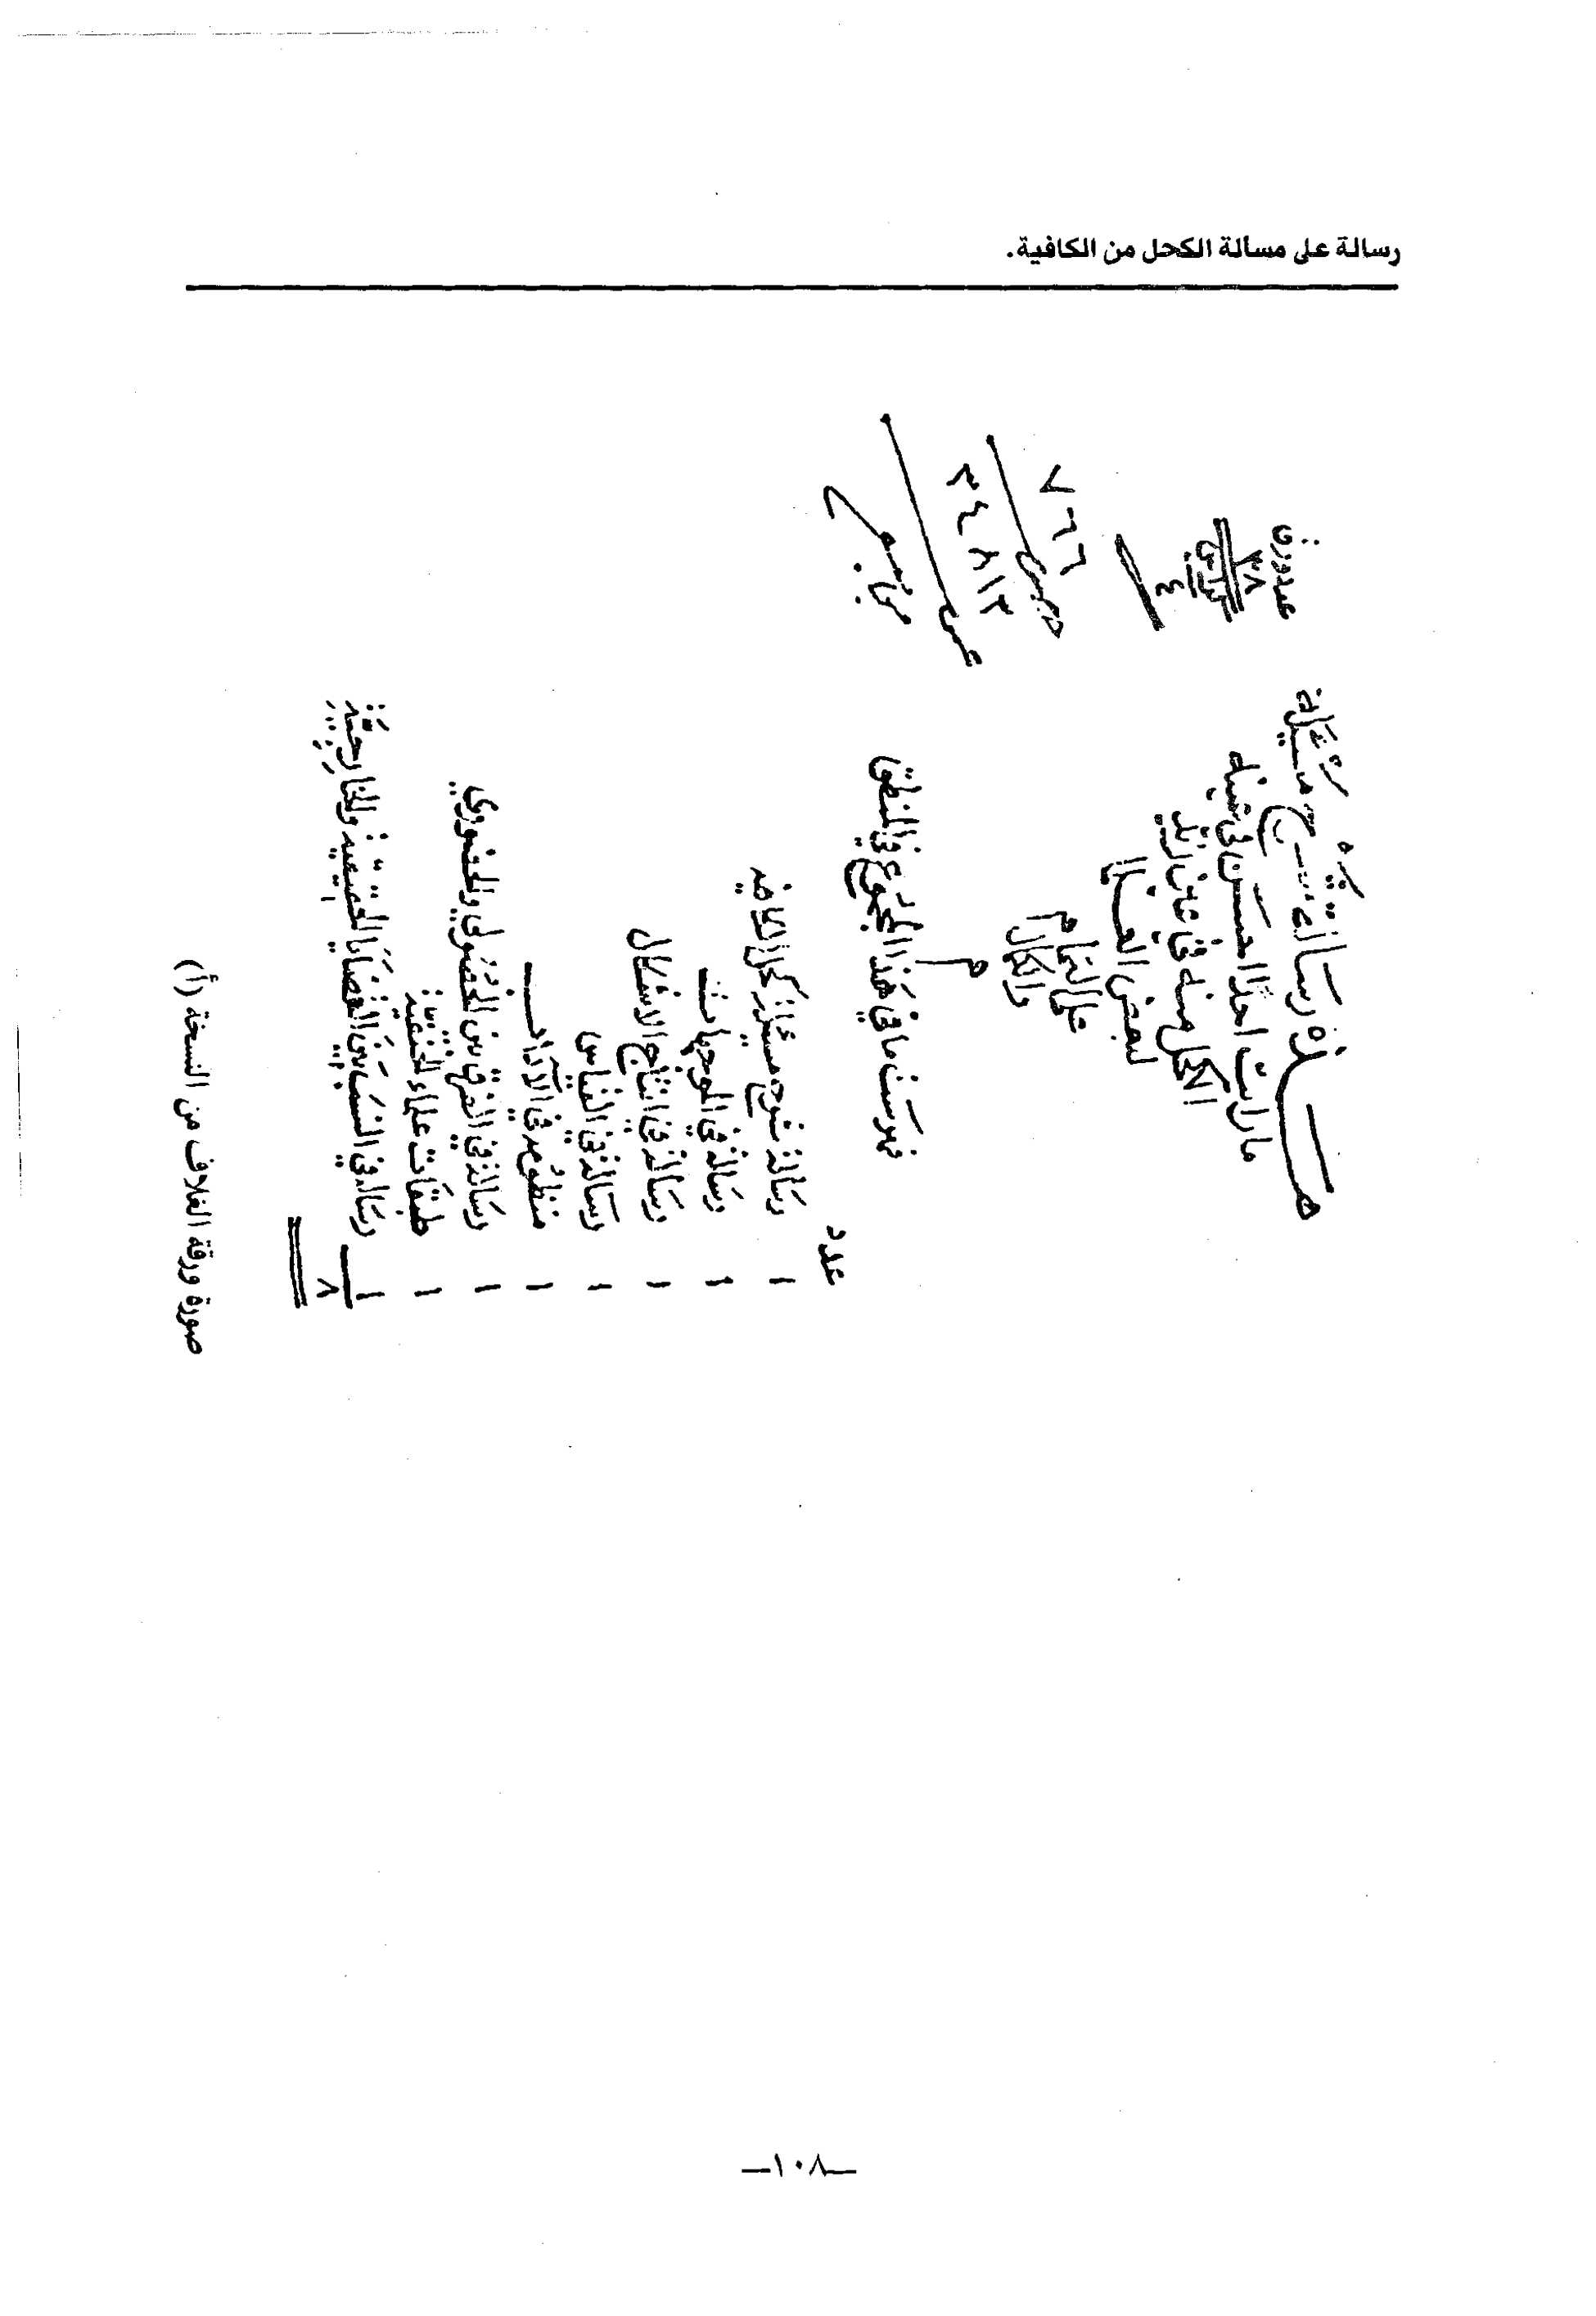 رسالة على مسألة الكحل من الكافية.
٧٦٦
٣٤٨١٣
هذه رسالة شرح مسئلة
ما رايت احدا احسن في عينه
الكحل منه في عين زيد
لبعض
على التمام
والكمال
م
فهرست ما في هذا المجموع في المنطق
عدد
١ رسالة شرح مسئلة كحل الكافيه
١ رسالة في الموجهات
١ رسالة في انتاج الاشكال
١ رسالة في القياس
١ منظومه في الآداب
١ رسالة في الفرق بين الحصولي والحضوري
١ طبقات علماء الحنفية
١ رسالة في النسب بين القضايا الحقيقية والخارجية
٨
صورة ورقة الغلاف من النسخة (أ)
—١٠٨—